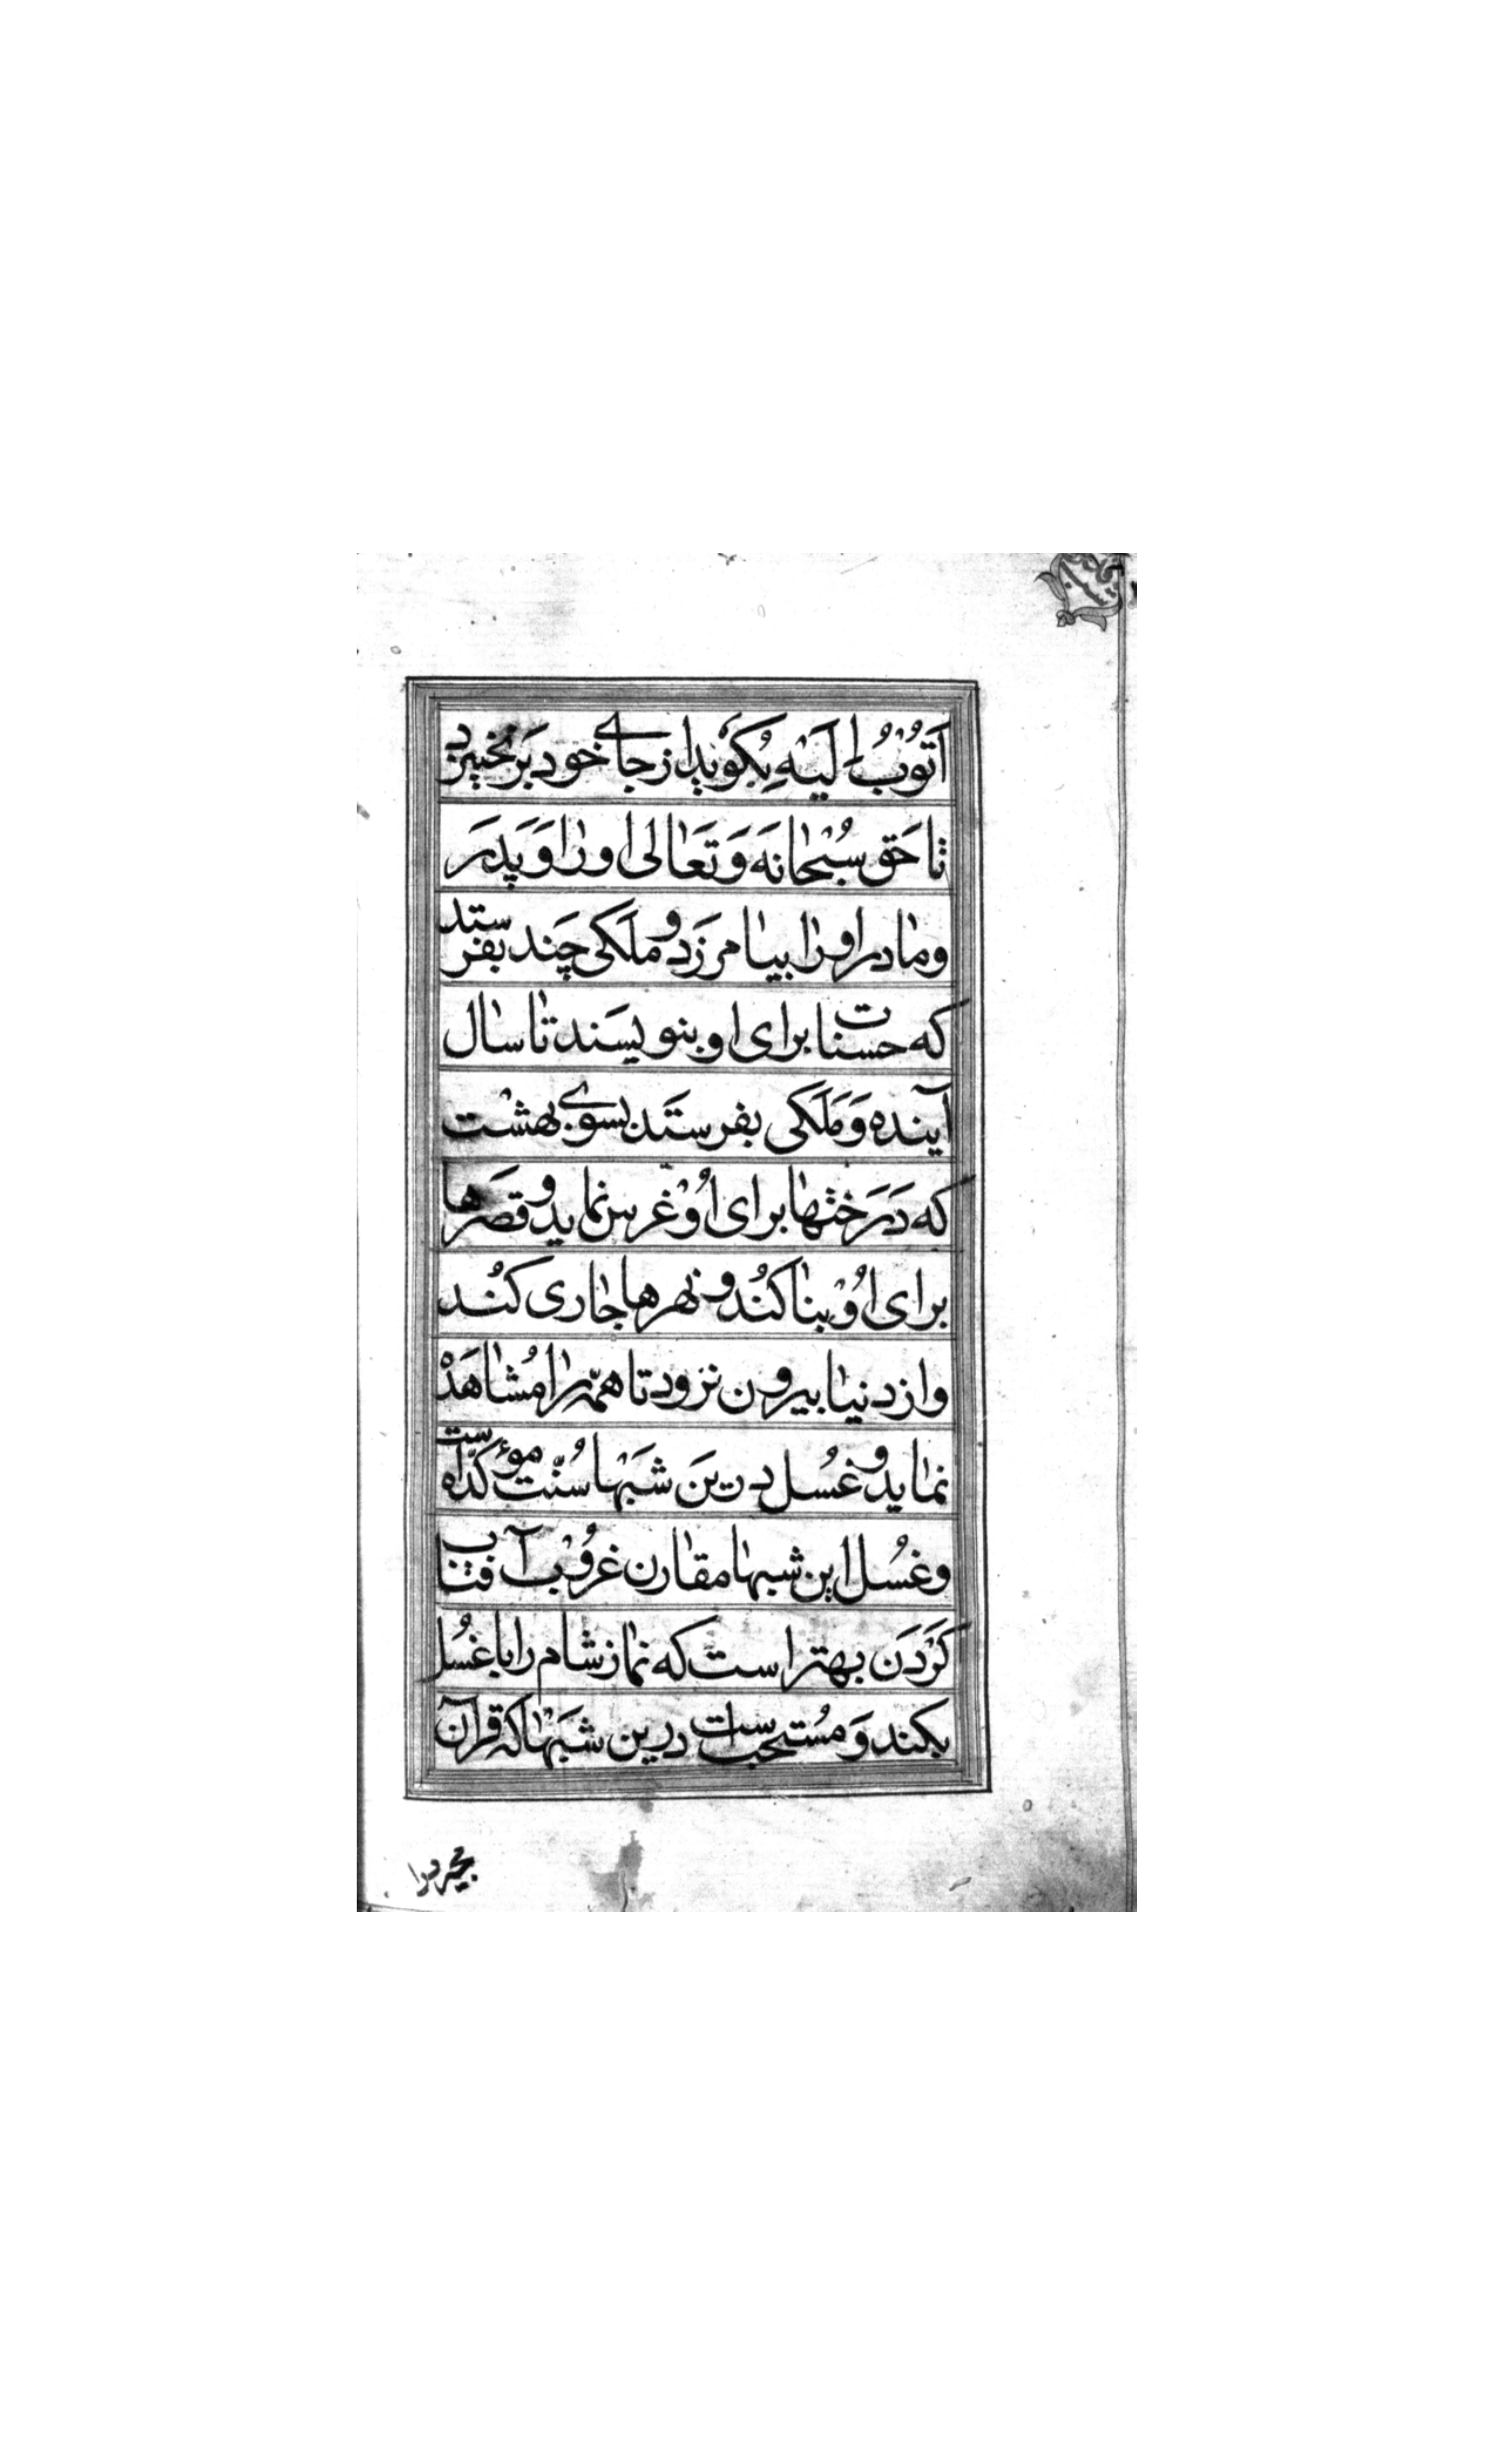 اَتُوْبُ اِلَیْهِ بِگوَیْد از جاے خود بَر نخیزد
تا حَق سُبْحٰانَه وَ تَعٰالی او رٰا وَ پَدَر
و مٰادر او رٰا بیٰامرزَد و ملَکی چَند بفرستد
که حسنات برای او بنویسَند تٰا سٰال
آینده وَ مَلَکی بفرستَد بسوے بهشْت
که دَرَختهٰا برای اُوْ غرس نماید و قصَرها
برای اُوْ بنٰا کنُد و نهرها جٰاری کُند
و از دنیٰا بیرون نرود تا همّه رٰا مُشٰاهَدْه
نمٰاید و غسُل درین شَبْها سُنّت موٴکّداست
و غسُل این شبهٰا مقٰارن غروُبْ آفتاب
کَرْدَن بهتر است که نمٰاز شام را با غسُل
بکند وَ مُستحب است درین شبَهْا که قرآن
مجیدرا